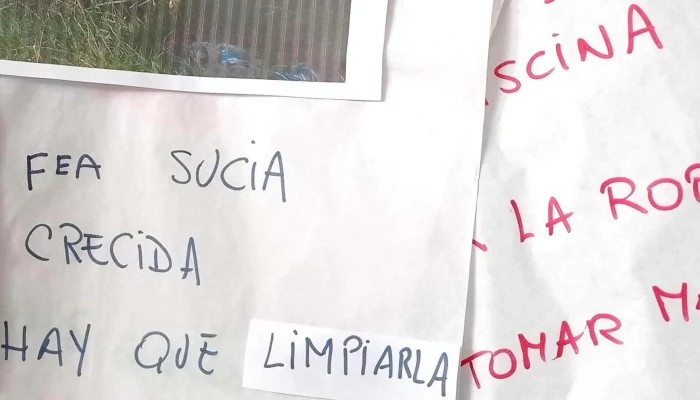 FEA SUCIA
CRECIDA
HAY QUE LIMPIARLA
SCINA
LA
TOMAR